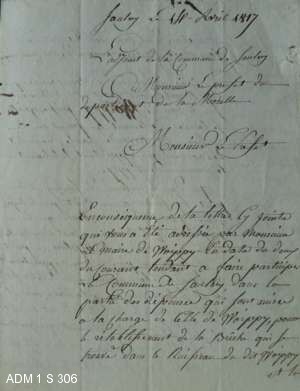 Saulny le 14 Avril 1817
L'adjoint de la Commune de Saulny
A Monsieur le préfet du
département de la Moselle
Monsieur le Préfet
En conséquence de la lettre Cy Jointe
qui vous a été adressée par Monsieur
le maire de Woippy en date du deux
du courant, tendant à faire participer
la Commune de Saulny dans la
partie des dépenses qui sont mises
à la charge de celle de Woippy, pour
le rétablissement de la Brèche qui se
trouve dans le Ruisseau de Woippy
et le
ADM 1 S 306